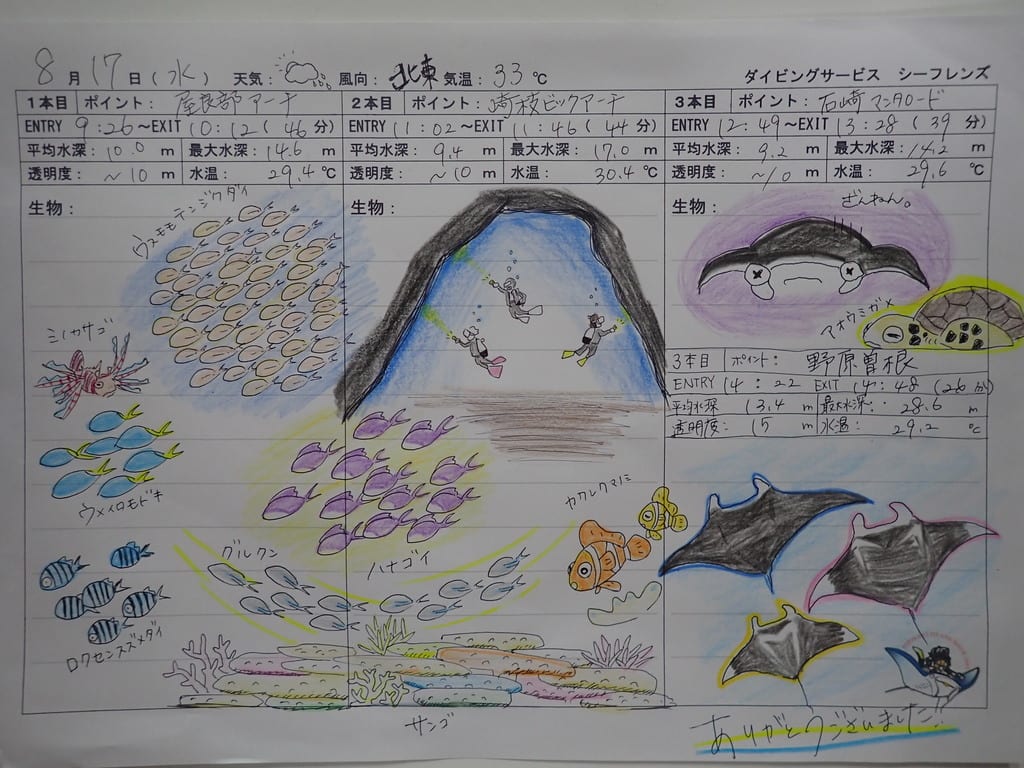 8月17日(水) 天気: 風向:北東 気温:33℃ ダイビングサービス シーフレンズ
1本目 ポイント: 屋良部アーチ 2本目 ポイント: 崎枝ビックアーチ 3本目 ポイント: 石崎マンタロード
ENTRY 9:26~EXIT 10:12(46分) ENTRY 11:02~EXIT 11:46(44分) ENTRY 12:49~EXIT 13:28(39分)
平均水深:10.0 m 最大水深:14.6 m 平均水深:9.4 m 最大水深:17.0 m 平均水深:9.2 m 最大水深:14.2 m
透明度:~10 m 水温:29.4℃ 透明度:~10 m 水温:30.4℃ 透明度:~10 m 水温:29.6℃
生物: 生物: 生物:
ウスモモテンジクダイ
ざんねん。
アオウミガメ
ミノカサゴ
3本目 ポイント: 野原曽根
ENTRY 14:22 EXIT 14:48(26分)
平均水深 13.4 m 最大水深: 28.6 m
透明度: 15 m 水温: 29.2 ℃
ウメイロモドキ
カクレクマノミ
グルクン
ハナゴイ
ロクセンスズメダイ
サンゴ
ありがとうございました!!